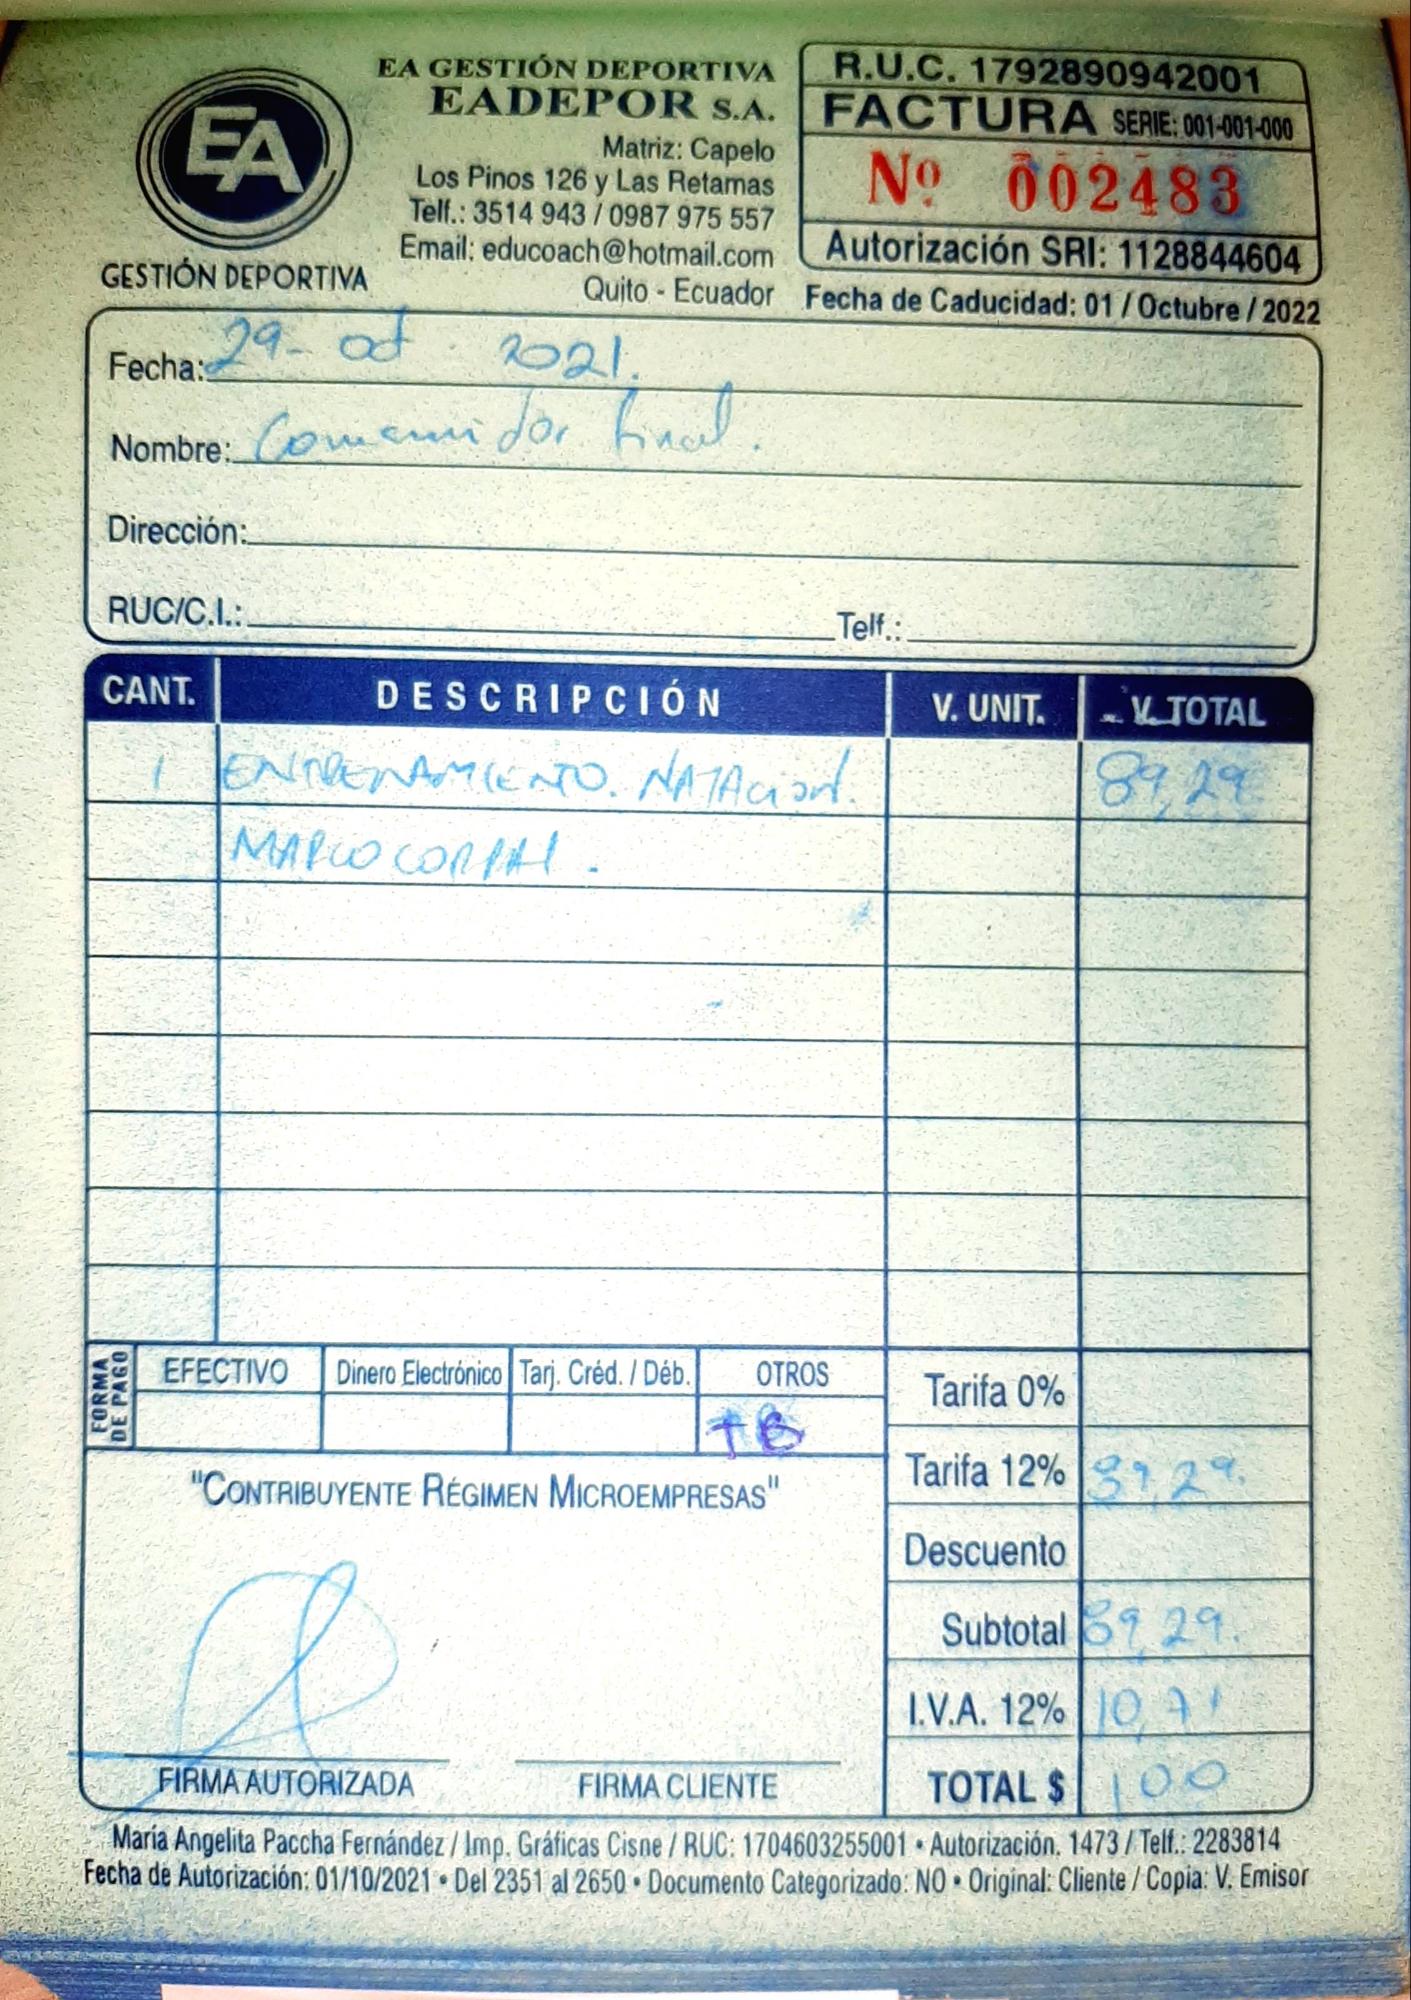 EA
GESTIÓN DEPORTIVA
EA GESTIÓN DEPORTIVA
EADEPOR S.A.
Matriz: Capelo
Los Pinos 126 y Las Retamas
Telf.: 3514 943 / 0987 975 557
Email: educoach@hotmail.com
Quito - Ecuador
R.U.C. 1792890942001
FACTURA SERIE: 001-001-000
Nº 002483
Autorización SRI: 1128844604
Fecha de Caducidad: 01 / Octubre / 2022
Fecha: 29- oct 2021.
Nombre: Consumidor final.
Dirección:
RUC/C.I.: Telf.:
CANT. DESCRIPCIÓN V. UNIT. V. TOTAL
1 ENTRENAMIENTO. NATACION. 89,29
MARCO
FORMA DE PAGO
EFECTIVO Dinero Electrónico Tarj. Créd. / Déb. OTROS
TB
Tarifa 0%
Tarifa 12% 89,29.
Descuento
Subtotal 89,29.
I.V.A. 12% 10,71
TOTAL $ 100
"CONTRIBUYENTE RÉGIMEN MICROEMPRESAS"
FIRMA AUTORIZADA FIRMA CLIENTE
María Angelita Paccha Fernández / Imp. Gráficas Cisne / RUC: 1704603255001 • Autorización. 1473 / Telf.: 2283814
Fecha de Autorización: 01/10/2021 • Del 2351 al 2650 • Documento Categorizado: NO • Original: Cliente / Copia: V. Emisor